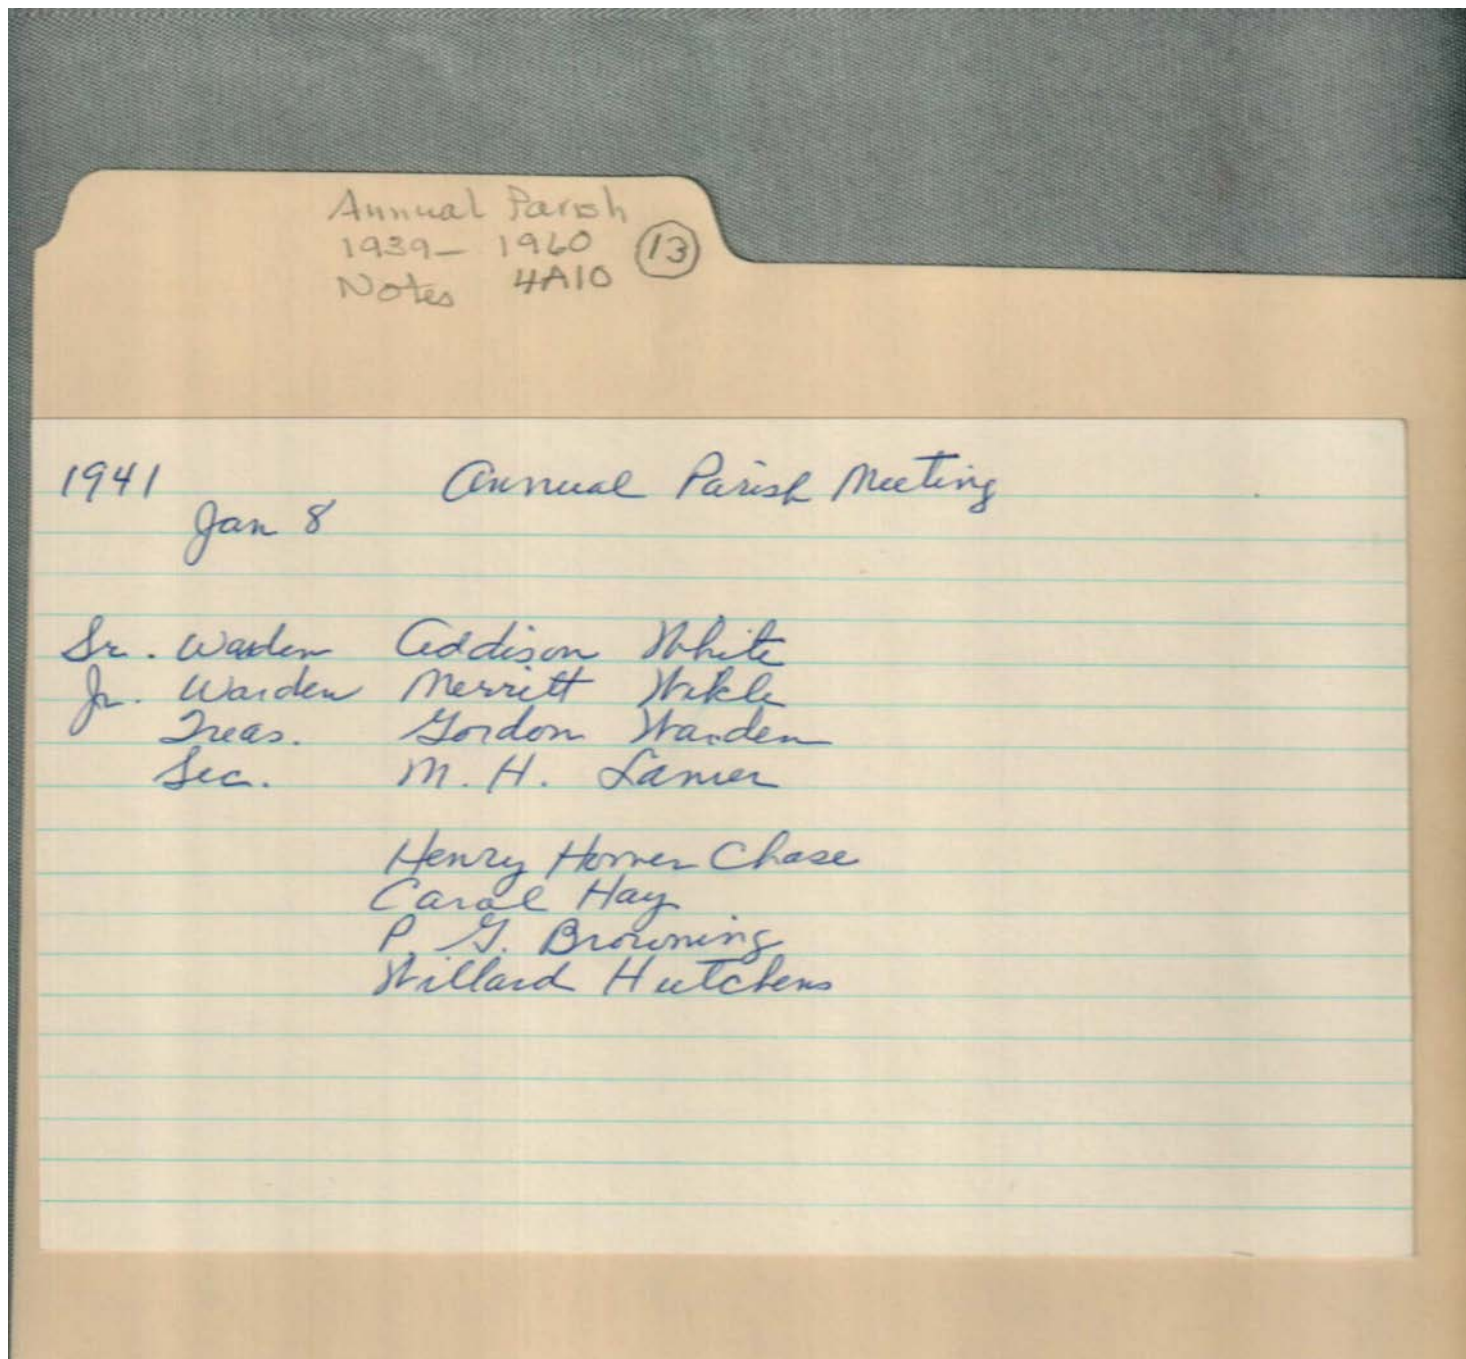 Annual Parish
1939- 1960 13
Notes 4A10
1941 Annual Parish Meeting
Jan 8
Sr. Warden Addison White
Jr. Warden Merritt Wikle
Treas. Gordon Warden
Sec. M. H. Lanier
Henry Homer Chase
Carol Hay
P. G. Browning
Willard Hutchens